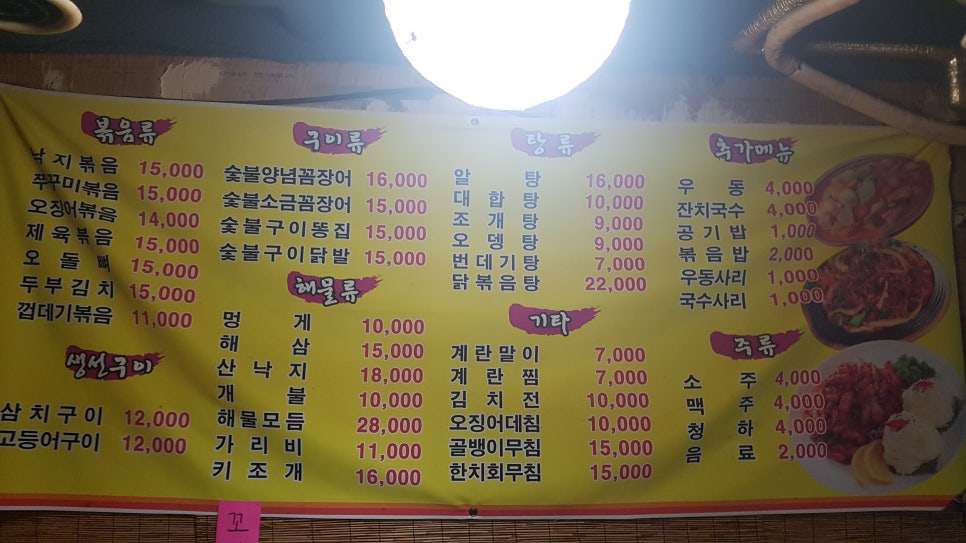 볶음류
낙지볶음 15,000
쭈꾸미볶음 15,000
오징어볶음 14,000
제육볶음 15,000
오돌뼈 15,000
두부김치 15,000
껍데기볶음 11,000
생선구이
삼치구이 12,000
고등어구이 12,000
구이류
숯불양념꼼장어 16,000
숯불소금꼼장어 15,000
숯불구이똥집 15,000
숯불구이닭발 15,000
해물류
멍게 10,000
해삼 15,000
산낙지 18,000
개불 10,000
해물모듬 28,000
가리비 11,000
키조개 16,000
탕류
알탕 16,000
대합탕 10,000
조개탕 9,000
오뎅탕 9,000
번데기탕 7,000
닭볶음탕 22,000
기타
계란말이 7,000
계란찜 7,000
김치전 10,000
오징어데침 10,000
골뱅이무침 15,000
한치회무침 15,000
추가메뉴
우동 4,000
잔치국수 4,000
공기밥 1,000
볶음밥 2,000
우동사리 1,000
국수사리 1,000
주류
소주 4,000
맥주 4,000
청하 4,000
음료 2,000
꼬